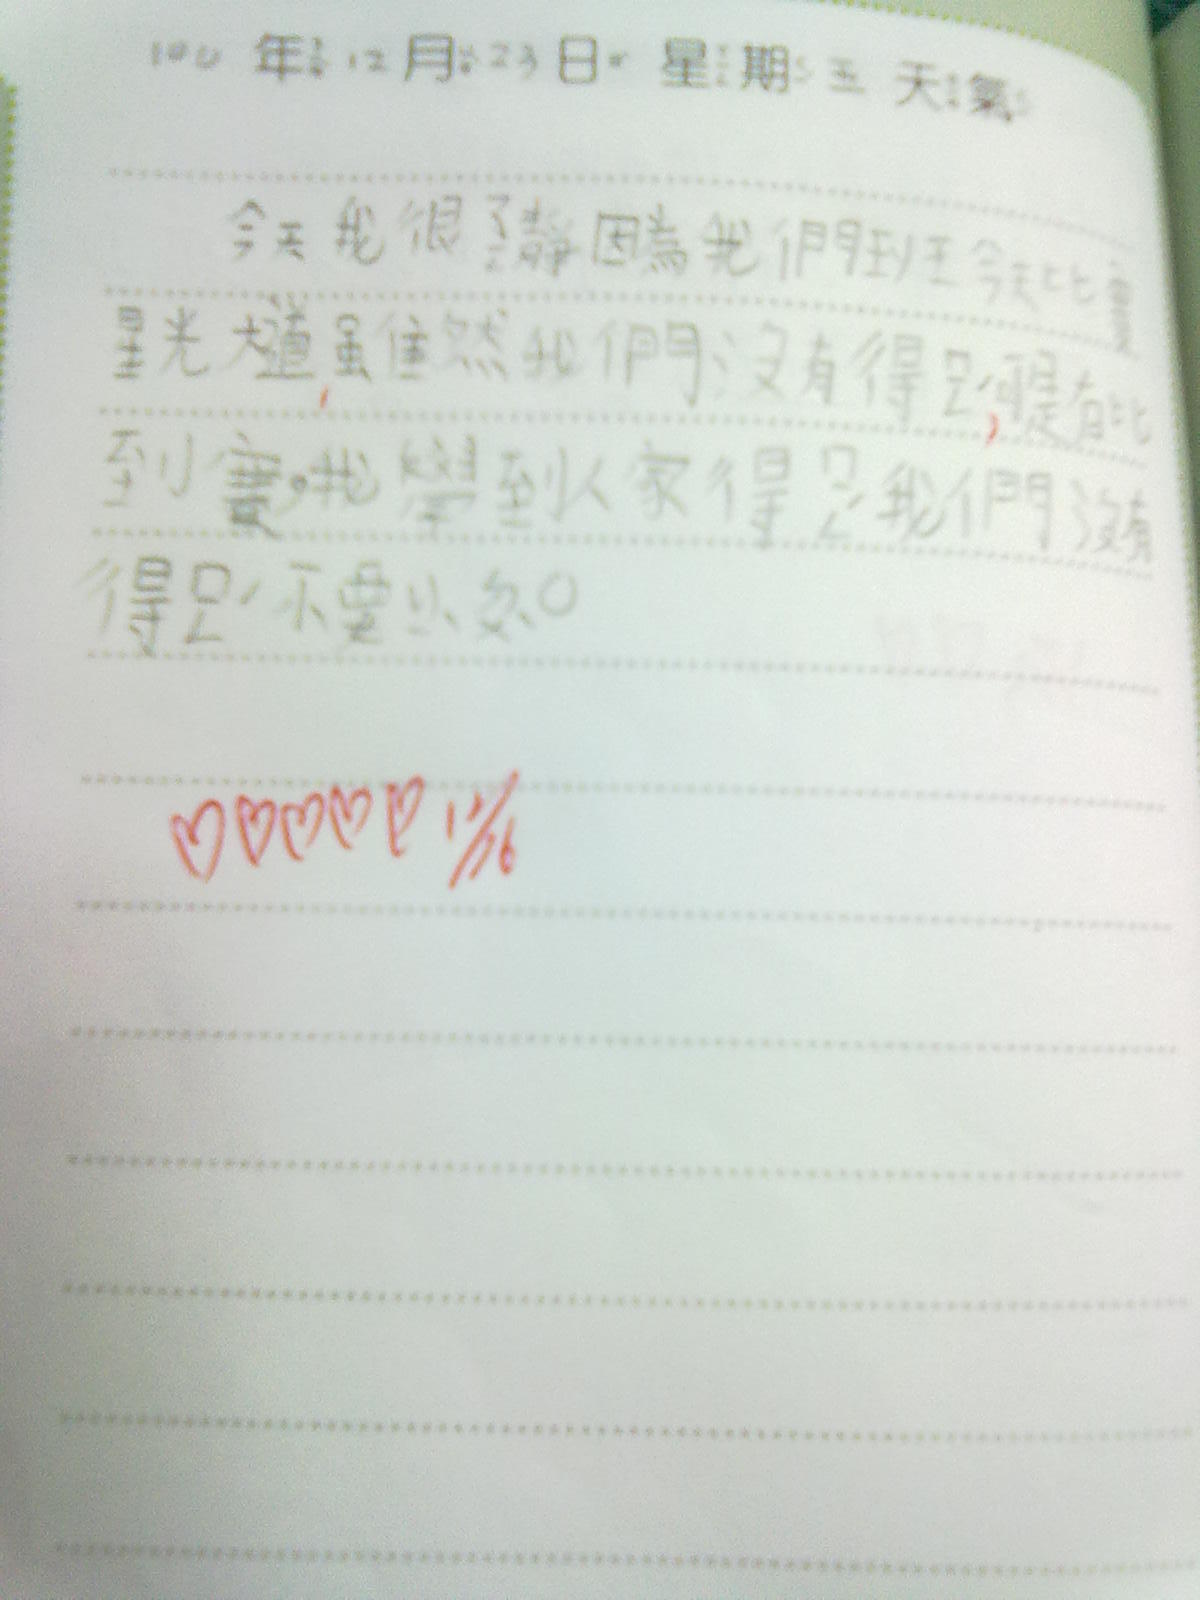 100 年 12 月 23 日 星期 五 天氣
今天我很 因為我們班今天比賽
星光大道,雖然我們沒有得名,還是有比
到賽,我學到人家得名我們沒有
得名不要